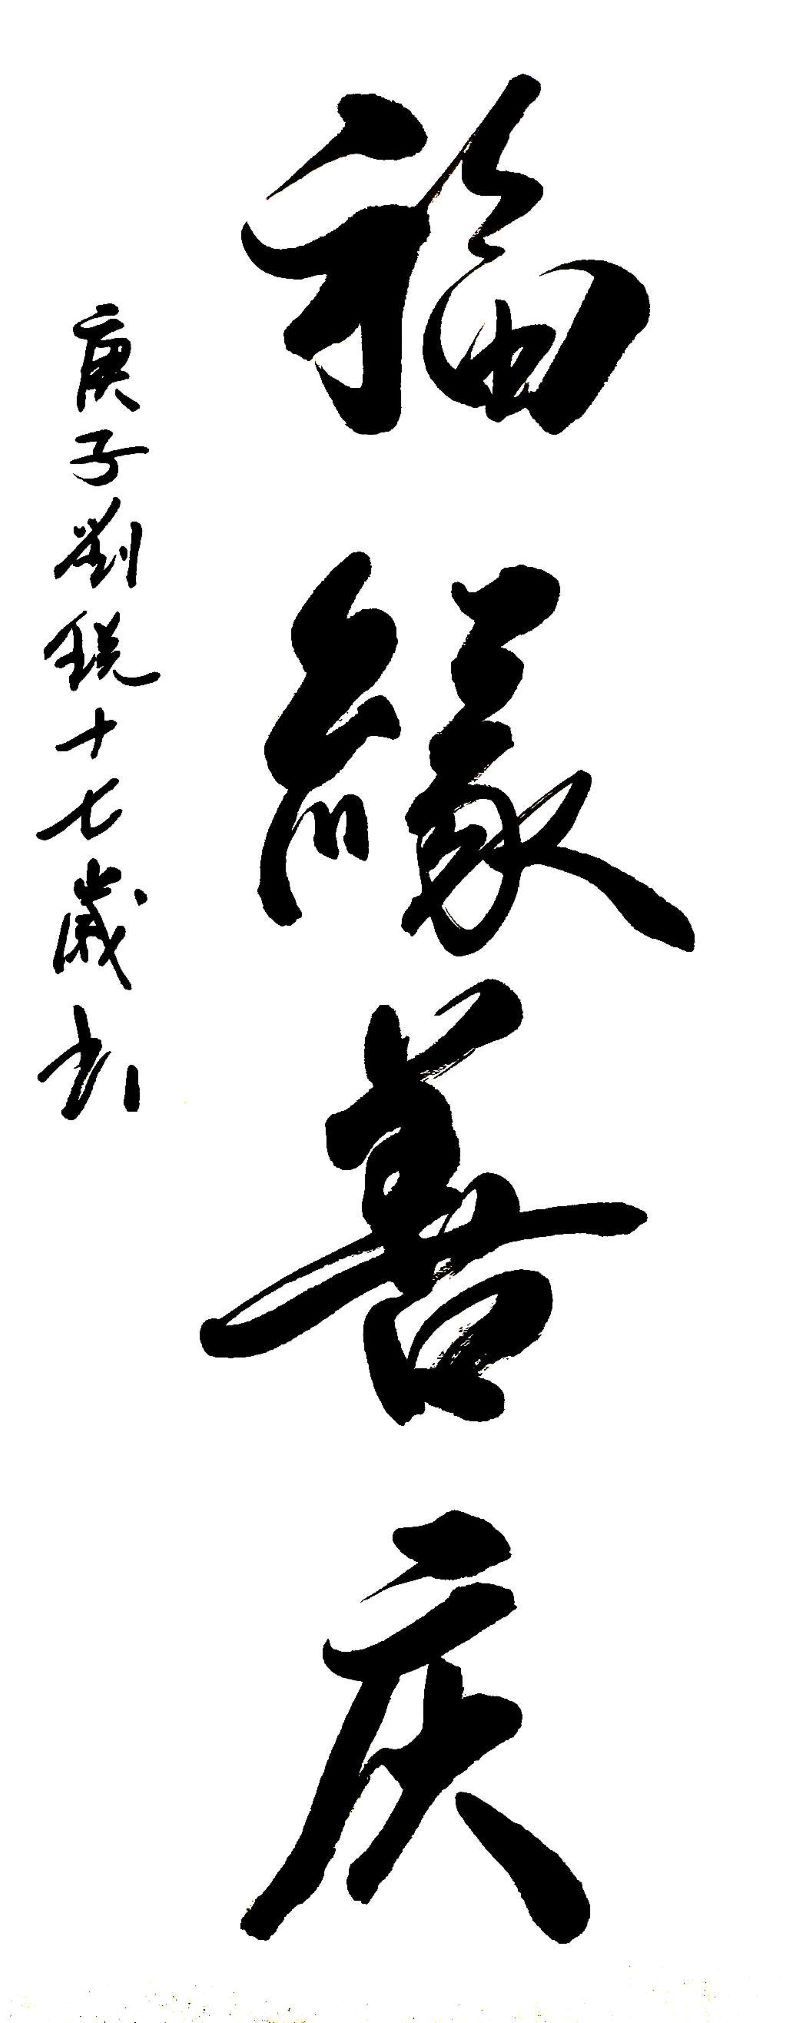 福缘善庆
庚子劉銳十七歲书